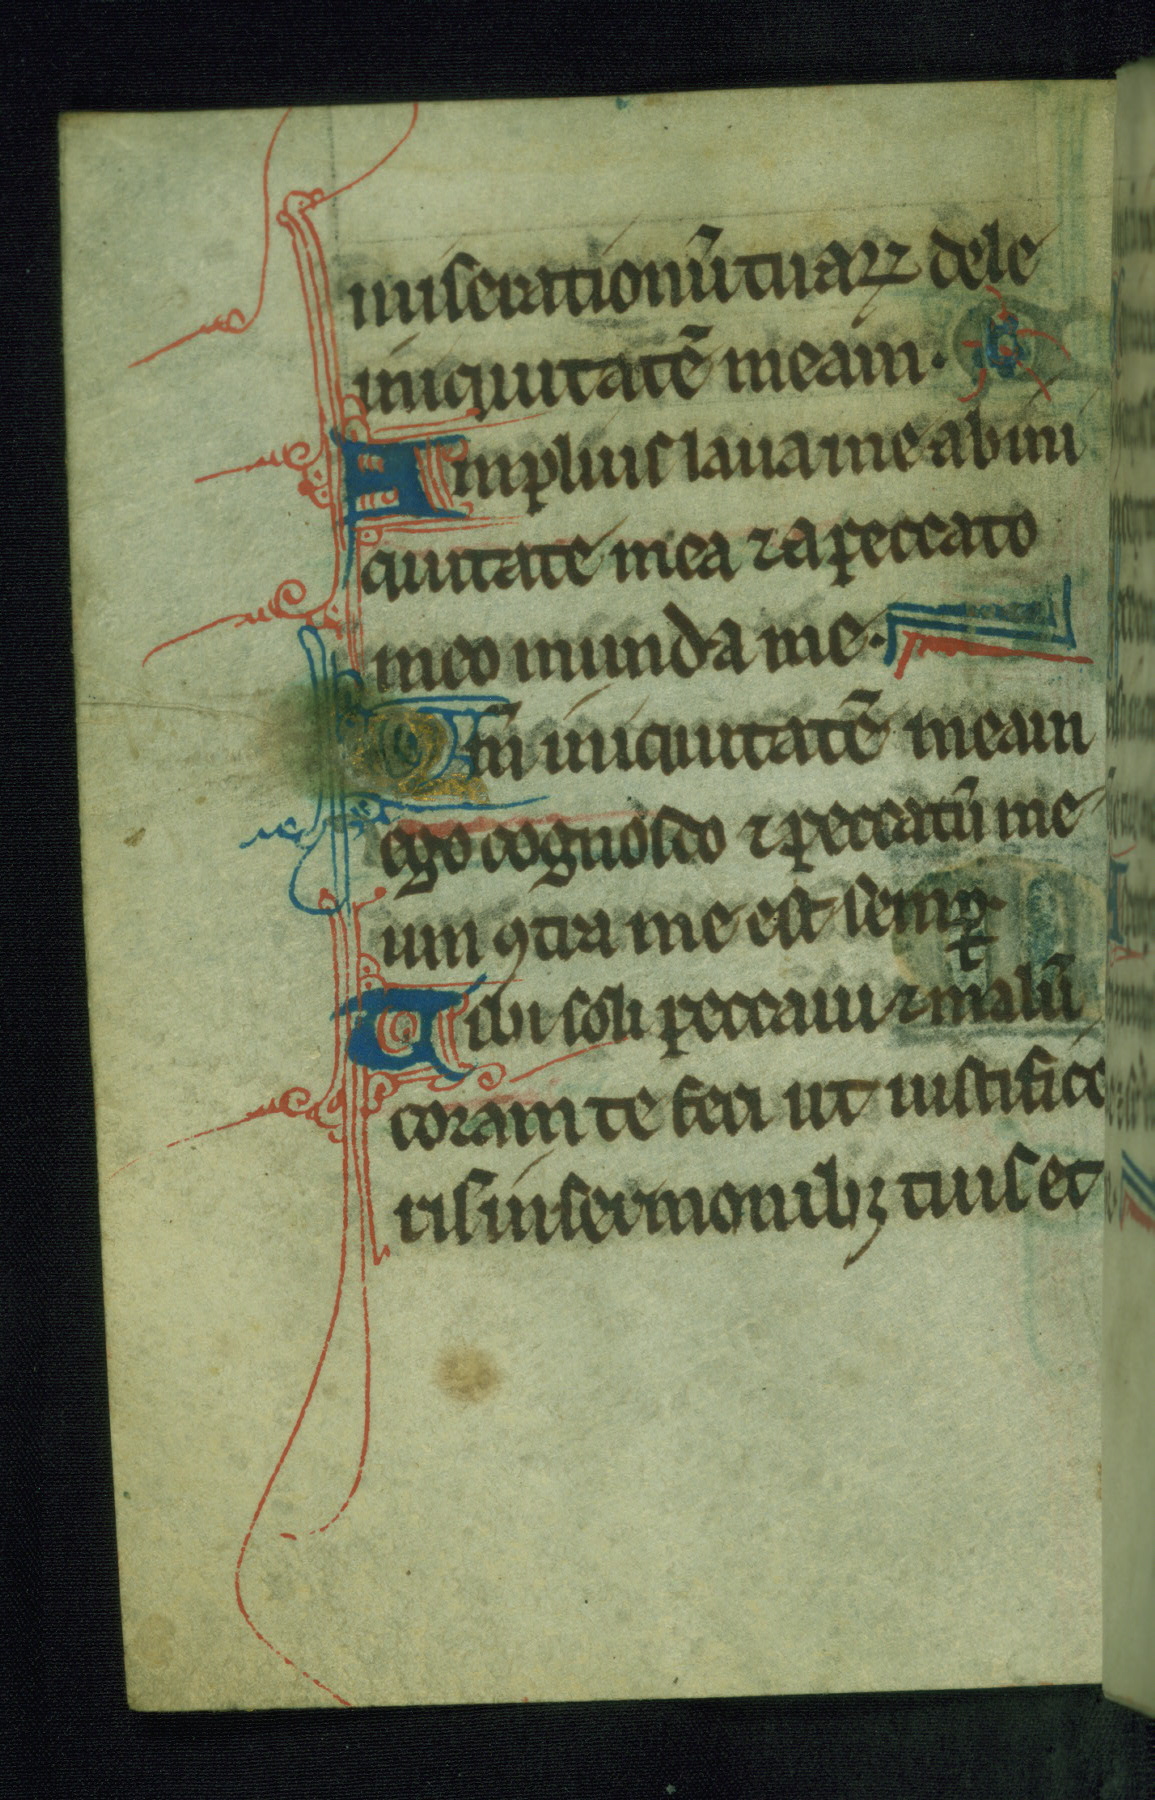 miserationū tuaꝝ dele
iniquitatē meam.
Amplius laua me ab ini
quitate mea ⁊ a peccato
meo munda me.
Qm̄ iniquitatē meam
ego cognosco ⁊ peccatū me
um ꝯtra me est semꝑ.
Tibi soli peccaui ⁊ malū
coram te feci ut iustifice
ris in sermonibꝫ tuis et